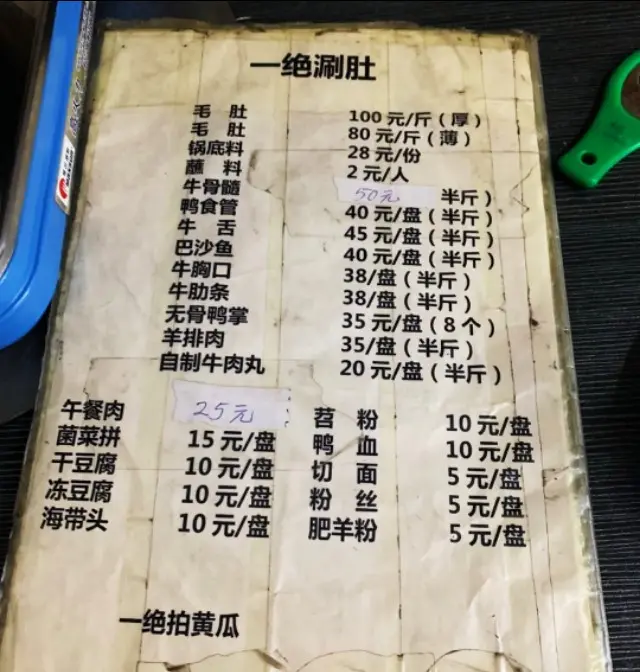 一绝涮肚
毛 肚 100元/斤（厚）
毛 肚 80元/斤（薄）
锅底料 28元/份
蘸 料 2元/人
牛骨髓 50元 半斤）
鸭食管 40元/盘（半斤）
牛 舌 45元/盘（半斤）
巴沙鱼 40元/盘（半斤）
牛胸口 38/盘（半斤）
牛肋条 38/盘（半斤）
无骨鸭掌 35元/盘（8个）
羊排肉 35/盘（半斤）
自制牛肉丸 20元/盘（半斤）
午餐肉 25元 苕 粉 10元/盘
菌菜拼 15元/盘 鸭 血 10元/盘
干豆腐 10元/盘 切 面 5元/盘
冻豆腐 10元/盘 粉 丝 5元/盘
海带头 10元/盘 肥羊粉 5元/盘
一绝拍黄瓜